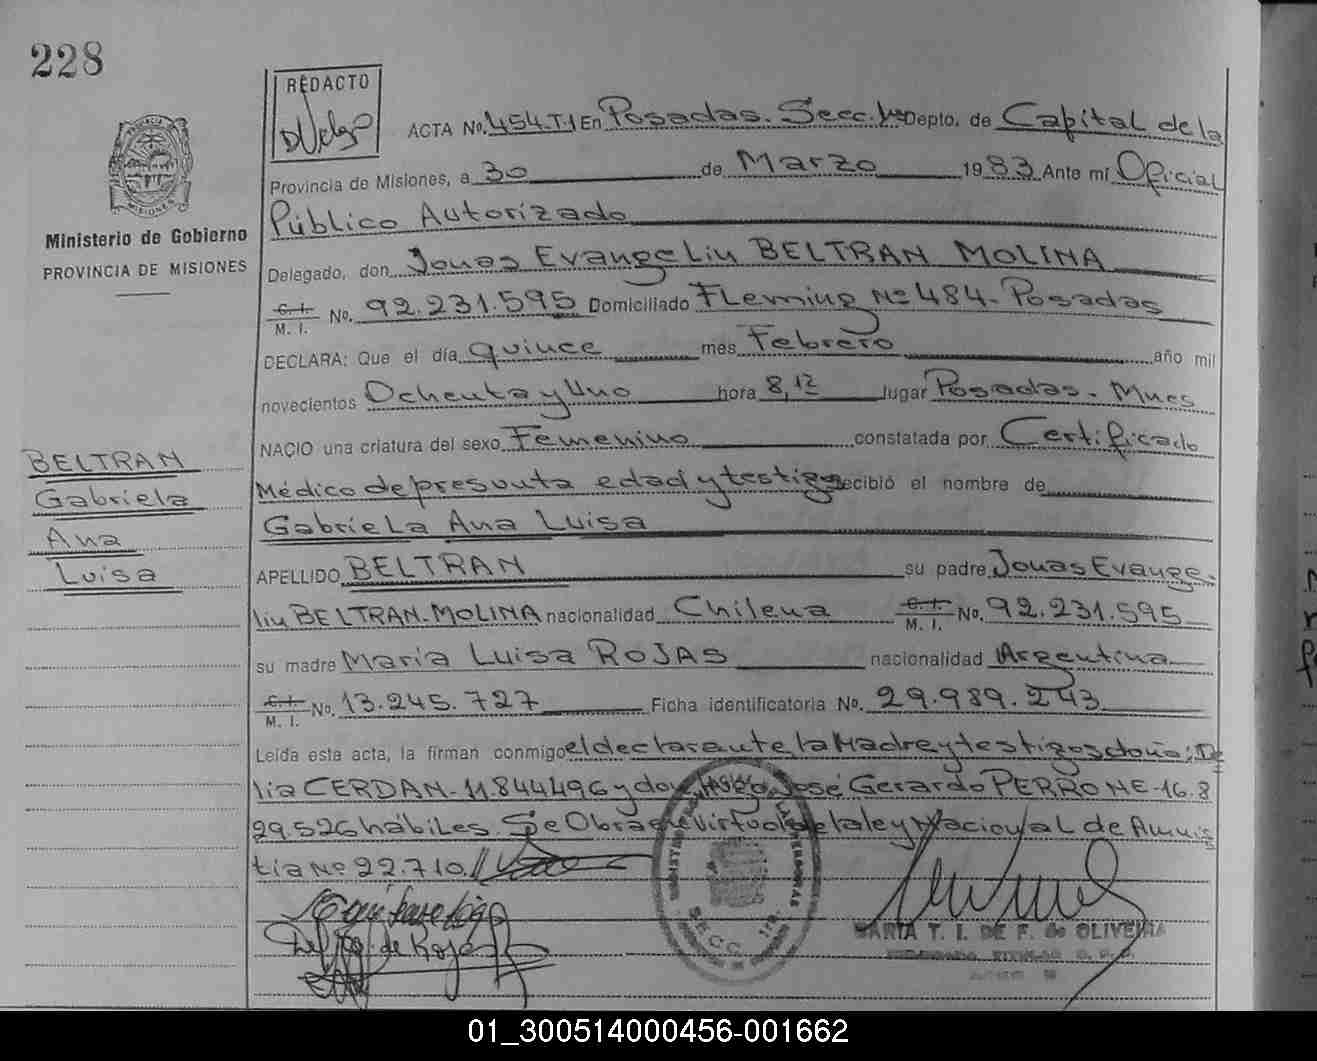 228
REDACTO
ACTA No. 454.T.1 En Posadas. Secc. 1ra Depto. de Capital de la
Provincia de Misiones, a 30 de Marzo 1983 Ante mí Oficial
Público Autorizado
Ministerio de Gobierno
PROVINCIA DE MISIONES
Delegado, don Jonas Evangeliu BELTRAN MOLINA
C. I.
M. I. No. 92.231.595 Domiciliado Fleming Nº 484- Posadas
DECLARA: Que el día quince mes Febrero año mil
novecientos Ochenta y Uno hora 8,12 lugar Posadas. Mnes
NACIO una criatura del sexo Femenino constatada por Certificado
Médico de presunta edad y testigos recibió el nombre de
Gabriela Ana Luisa
BELTRAN
Gabriela
Ana
Luisa
APELLIDO BELTRAN su padre Jonas Evange-
liu BELTRAN. MOLINA nacionalidad Chilena C. I. M. I. No. 92.231.595
su madre María Luisa ROJAS nacionalidad Argentina
C. I.
M. I. No. 13.245.727 Ficha identificatoria No. 29.989.243
Leída esta acta, la firman conmigo el declarante la Madre y testigos doña: De
lia CERDAN- 11.844496 y don José Gerardo PERRONE-16.8
29.526 hábiles. Se Obra en Virtud de la ley Nacional de Amnis
tia Nº 22.710.//
SECC. 1ra.
MARIA T. I. DE F. de OLIVEIRA
01_300514000456-001662